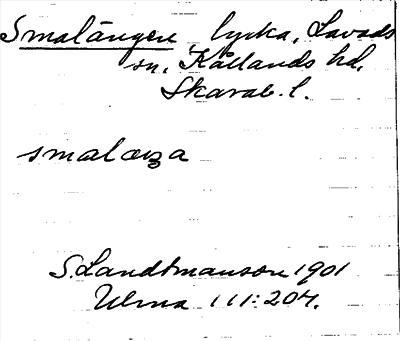 Smalängen lycka, Lavads
sn, Kållands hd,
Skarab. l.
smalæŋa
S. Landtmanson 1901
Ulma 111:204.